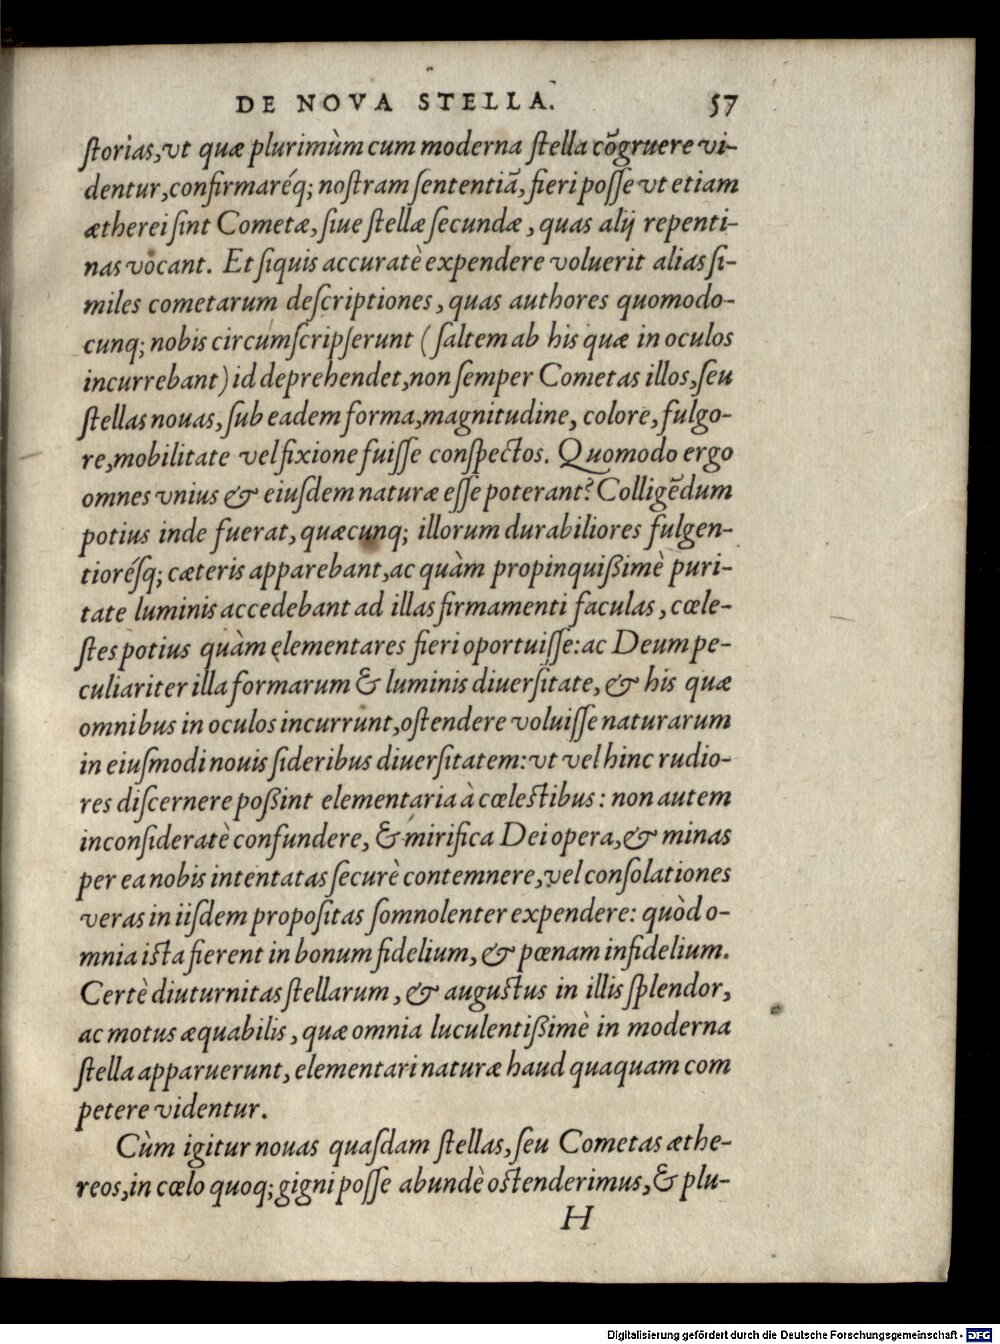 DE NOVA STELLA. 57
ſtorias,vt quæ plurimùm cum moderna ſtella cõgruere vi-
dentur,confirmaréq; noſtram ſententiã, fieri poſſe vt etiam
ætherei ſint Cometæ, ſiue ſtellæ ſecundæ, quas alij repenti-
nas vocant. Et ſiquis accuratè expendere voluerit alias ſi-
miles cometarum deſcriptiones, quas authores quomodo-
cunq; nobis circumſcripſerunt (ſaltem ab his quæ in oculos
incurrebant) id deprehendet,non ſemper Cometas illos,ſeu
ſtellas nouas, ſub eadem forma,magnitudine, colore, fulgo-
re,mobilitate vel fixione fuiſſe conſpectos. Quomodo ergo
omnes vnius & eiuſdem naturæ eſſe poterant? Colligẽdum
potius inde fuerat, quæcunq; illorum durabiliores fulgen-
tioréſq; cæteris apparebant,ac quàm propinquißimè puri-
tate luminis accedebant ad illas firmamenti faculas, cœle-
ſtes potius quàm elementares fieri oportuiſſe: ac Deum pe-
culiariter illa formarum & luminis diuerſitate, & his quæ
omnibus in oculos incurrunt,oſtendere voluiſſe naturarum
in eiuſmodi nouis ſideribus diuerſitatem: vt vel hinc rudio-
res diſcernere poßint elementaria à cœleſtibus: non autem
inconſideratè confundere, & mirifica Dei opera, & minas
per ea nobis intentatas ſecurè contemnere,vel conſolationes
veras in iiſdem propoſitas ſomnolenter expendere: quòd o-
mnia iſta fierent in bonum fidelium, & pœnam infidelium.
Certè diuturnitas ſtellarum, & auguſtus in illis ſplendor,
ac motus æquabilis, quæ omnia luculentißimè in moderna
ſtella apparuerunt, elementari naturæ haud quaquam com
petere videntur.
Cùm igitur nouas quaſdam ſtellas, ſeu Cometas æthe-
reos,in cœlo quoq; gigni poſſe abundè oſtenderimus, & plu-
H
Digitalisierung gefördert durch die Deutsche Forschungsgemeinschaft - DFG